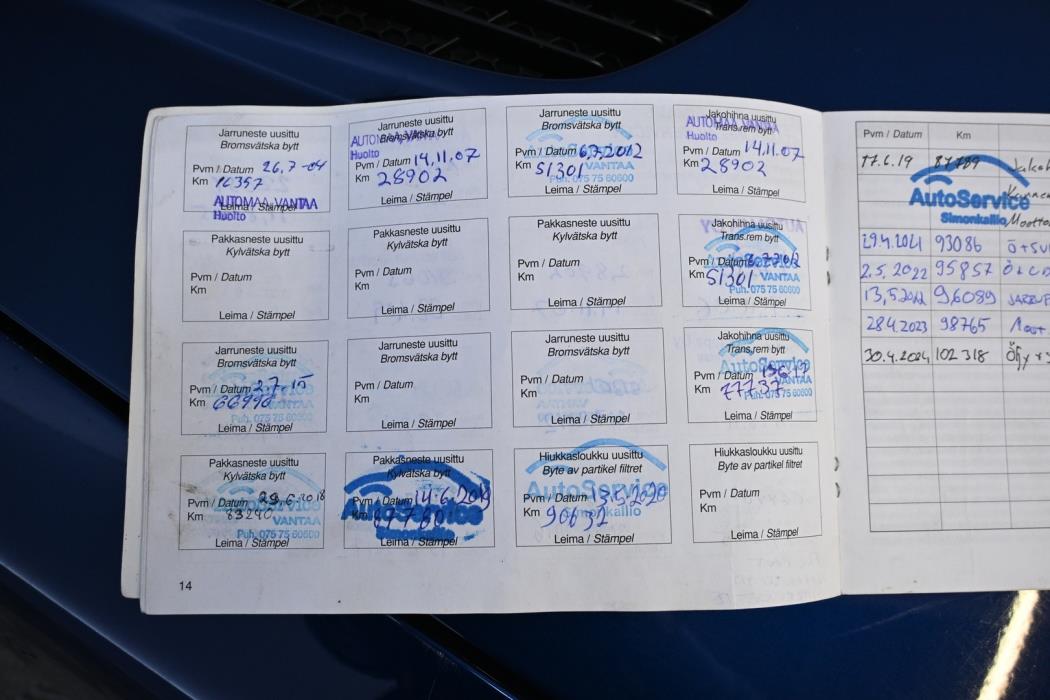 Jarruneste uusittu
Bromsvätska bytt
Pvm / Datum 26,7 -04
Km 16357
Leima / Stämpel
AUTOMAA VANTAA
Huolto
Jarruneste uusittu
Bromsvätska bytt
AUTOMAA VANTAA
Huolto
Pvm / Datum 14.11.07
Km 28902
Leima / Stämpel
Jarruneste uusittu
Bromsvätska bytt
Pvm / Datum 6.7.2012
Km 51301 VANTAA
Puh. 075 75 60600
Leima / Stämpel
Jakohihna uusittu
Trans.rem bytt
AUTOMAA VANTAA
Huolto
Pvm / Datum 14.11.07
Km 28902
Leima / Stämpel
Pakkasneste uusittu
Kylvätska bytt
Pvm / Datum
Km
Leima / Stämpel
Pakkasneste uusittu
Kylvätska bytt
Pvm / Datum
Km
Leima / Stämpel
Pakkasneste uusittu
Kylvätska bytt
Pvm / Datum
Km
Leima / Stämpel
Jakohihna uusittu
Trans.rem bytt
Pvm / Datum
Km 51301 VANTAA
Puh. 075 75 60600
Leima / Stämpel
Jarruneste uusittu
Bromsvätska bytt
Pvm / Datum 2.7.-15
Km 66990
Puh. 075 75 60600
Leima / Stämpel
Jarruneste uusittu
Bromsvätska bytt
Pvm / Datum
Km
Leima / Stämpel
Jarruneste uusittu
Bromsvätska bytt
Pvm / Datum
Km
Leima / Stämpel
Jakohihna uusittu
Trans.rem bytt
AutoService
Pvm / Datum
Km 77737 VANTAA
Puh. 075 75 60600
Leima / Stämpel
Pakkasneste uusittu
Kylvätska bytt
AutoService
Pvm / Datum 29.6.2018
Km 83240
VANTAA
Puh. 075 75 60600
Leima / Stämpel
Pakkasneste uusittu
Kylvätska bytt
Pvm / Datum 14.6.2019
AutoService
Km 87780
Leima / Stämpel
Hiukkasloukku uusittu
Byte av partikel filtret
AutoService
Pvm / Datum 13.5.2020
Simonkallio
Km 90632
Leima / Stämpel
Hiukkasloukku uusittu
Byte av partikel filtret
Pvm / Datum
Km
Leima / Stämpel
14
Pvm / Datum Km
17.6.19 87789
AutoService
Simonkallio
29.4.2021 93086
2.5.2022 95857
13.5.2022 96089
28.4.2023 98765
30.4.2024 102 318